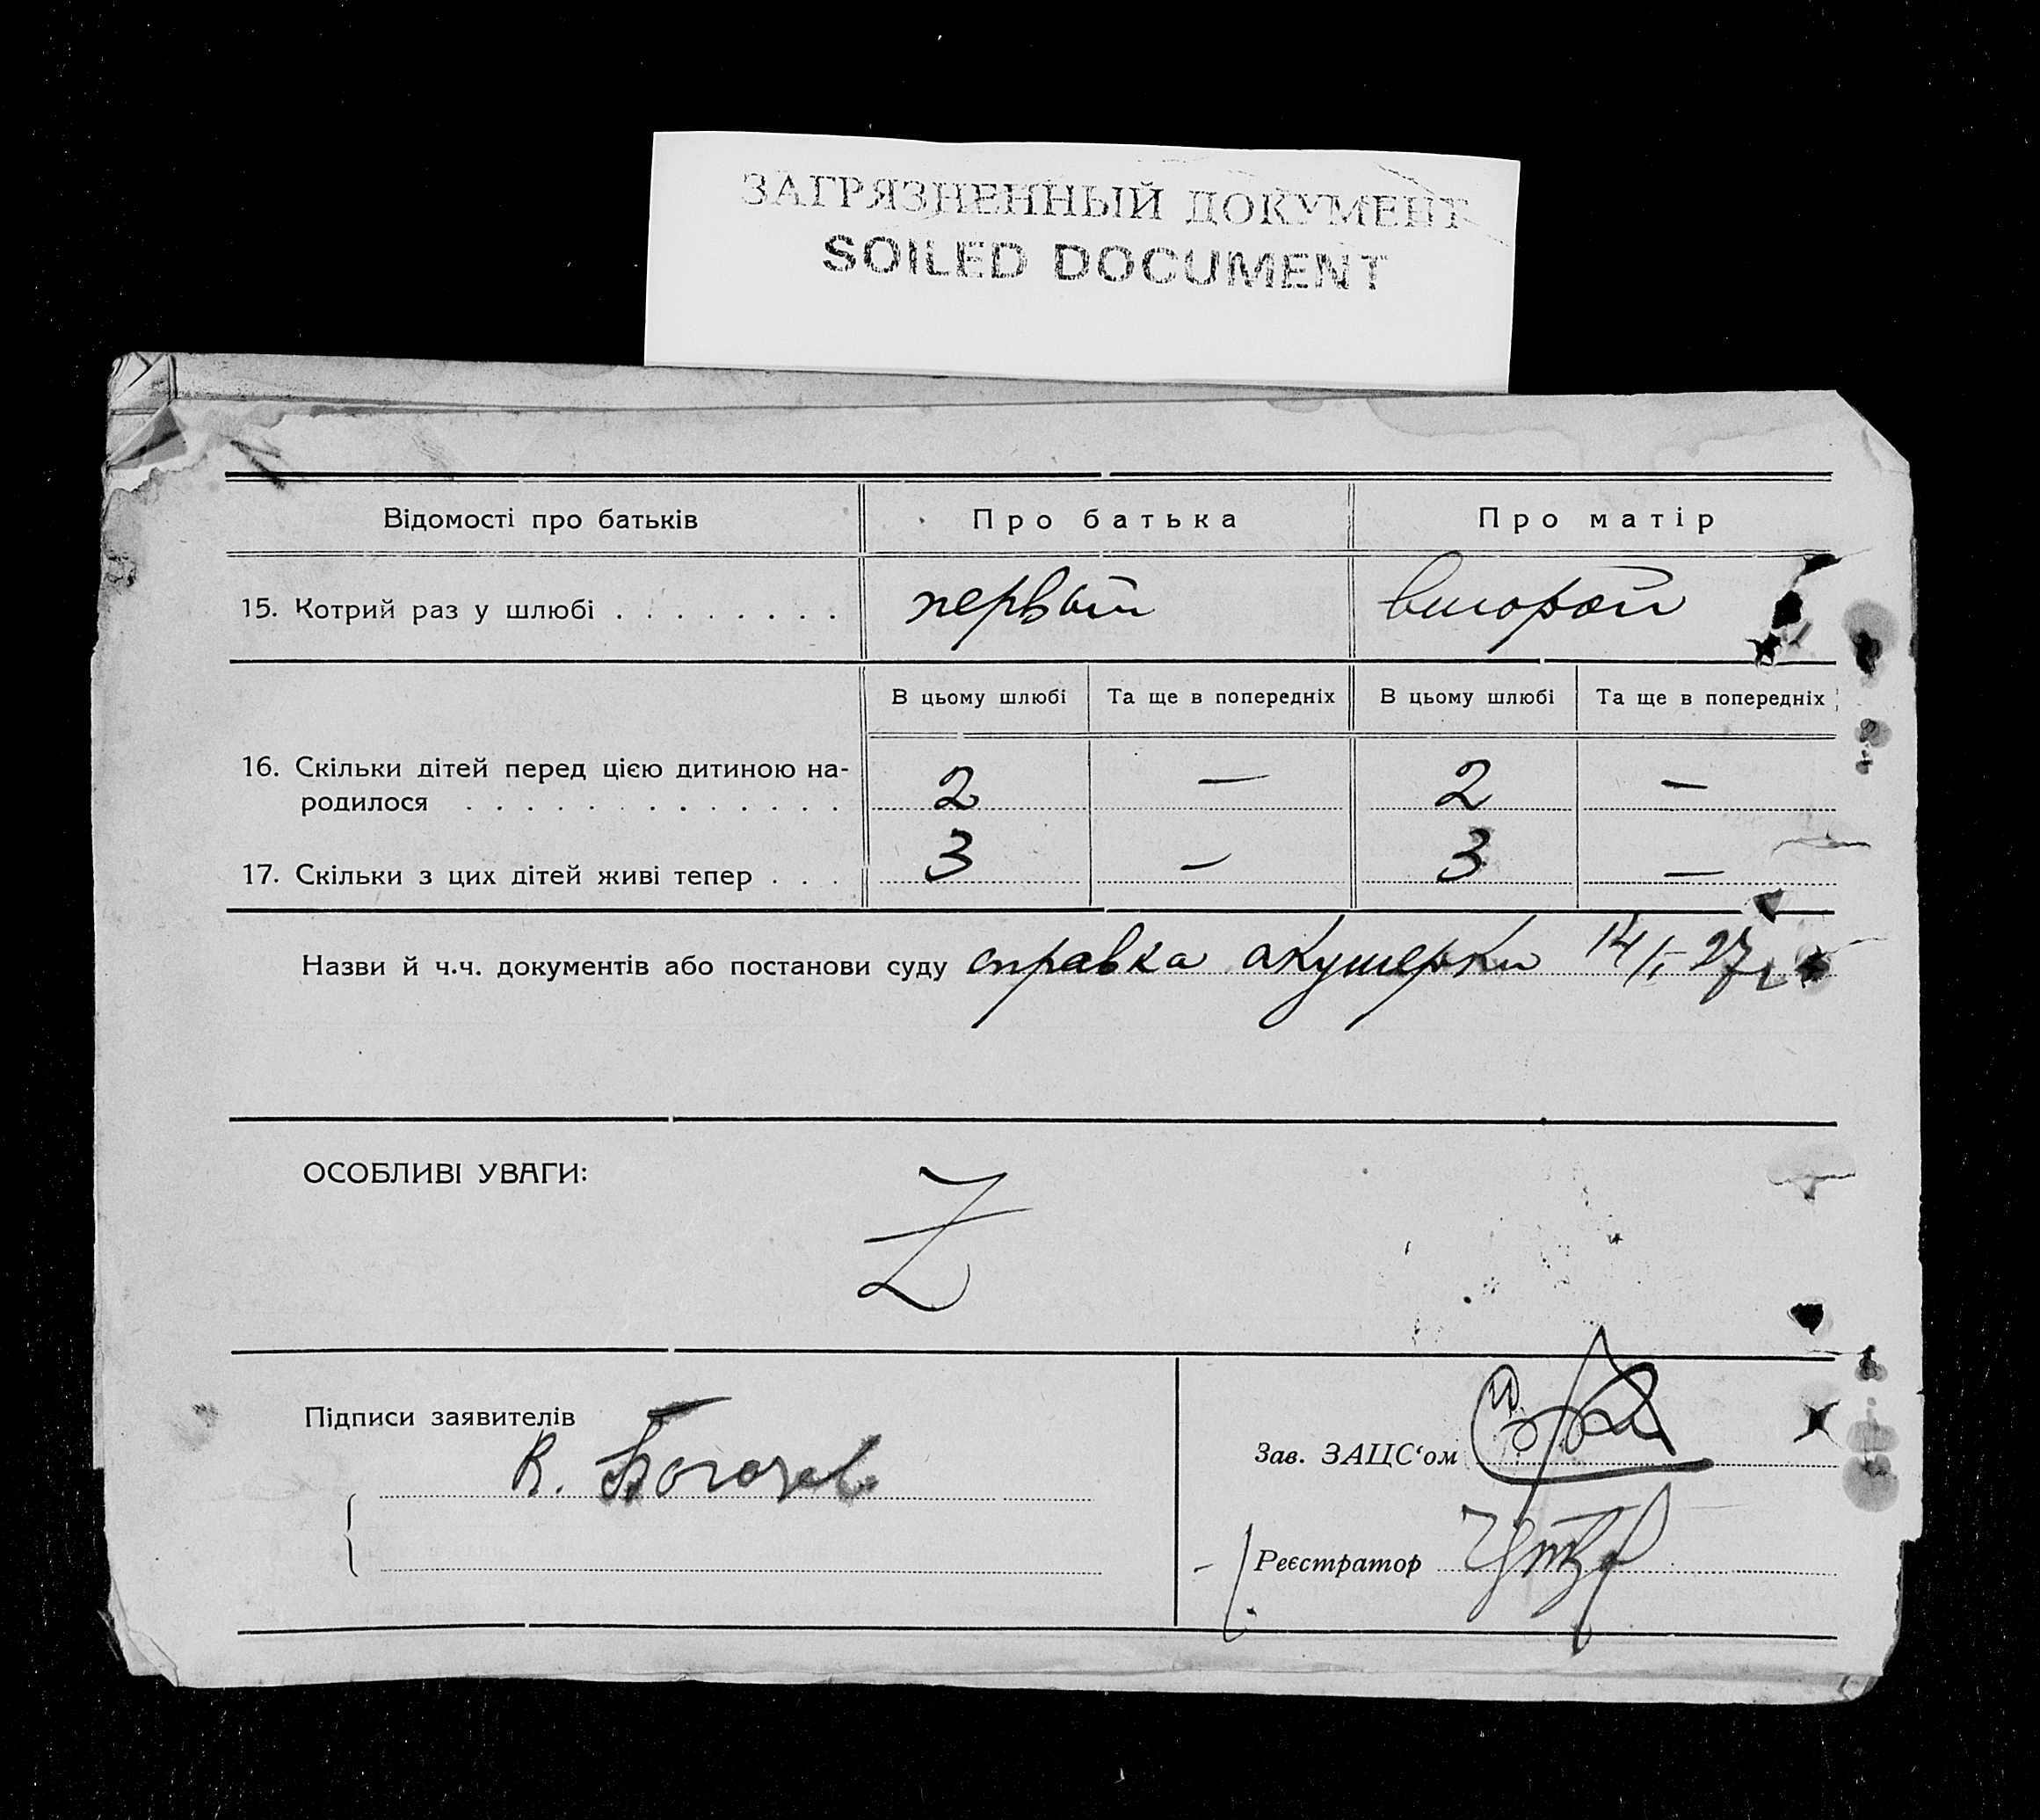 ЗАГРЯЗНЕННЫЙ ДОКУМЕНТ
SOILED DOCUMENT
Відомості про батьків Про батька Про матір
15. Котрий раз у шлюбі . . . . . . . . первый второй
В цьому шлюбі Та ще в попередніх В цьому шлюбі Та ще в попередніх
16. Скільки дітей перед цією дитиною на-
родилося . . . . . . . . . . . . . 2 — 2 —
17. Скільки з цих дітей живі тепер . . . 3 — 3 —
Назви й ч.ч. документів або постанови суду справка акушерки 14/I-27г
ОСОБЛИВІ УВАГИ:
Z
Підписи заявителів
Зав. ЗАЦС‘ом
Реєстратор